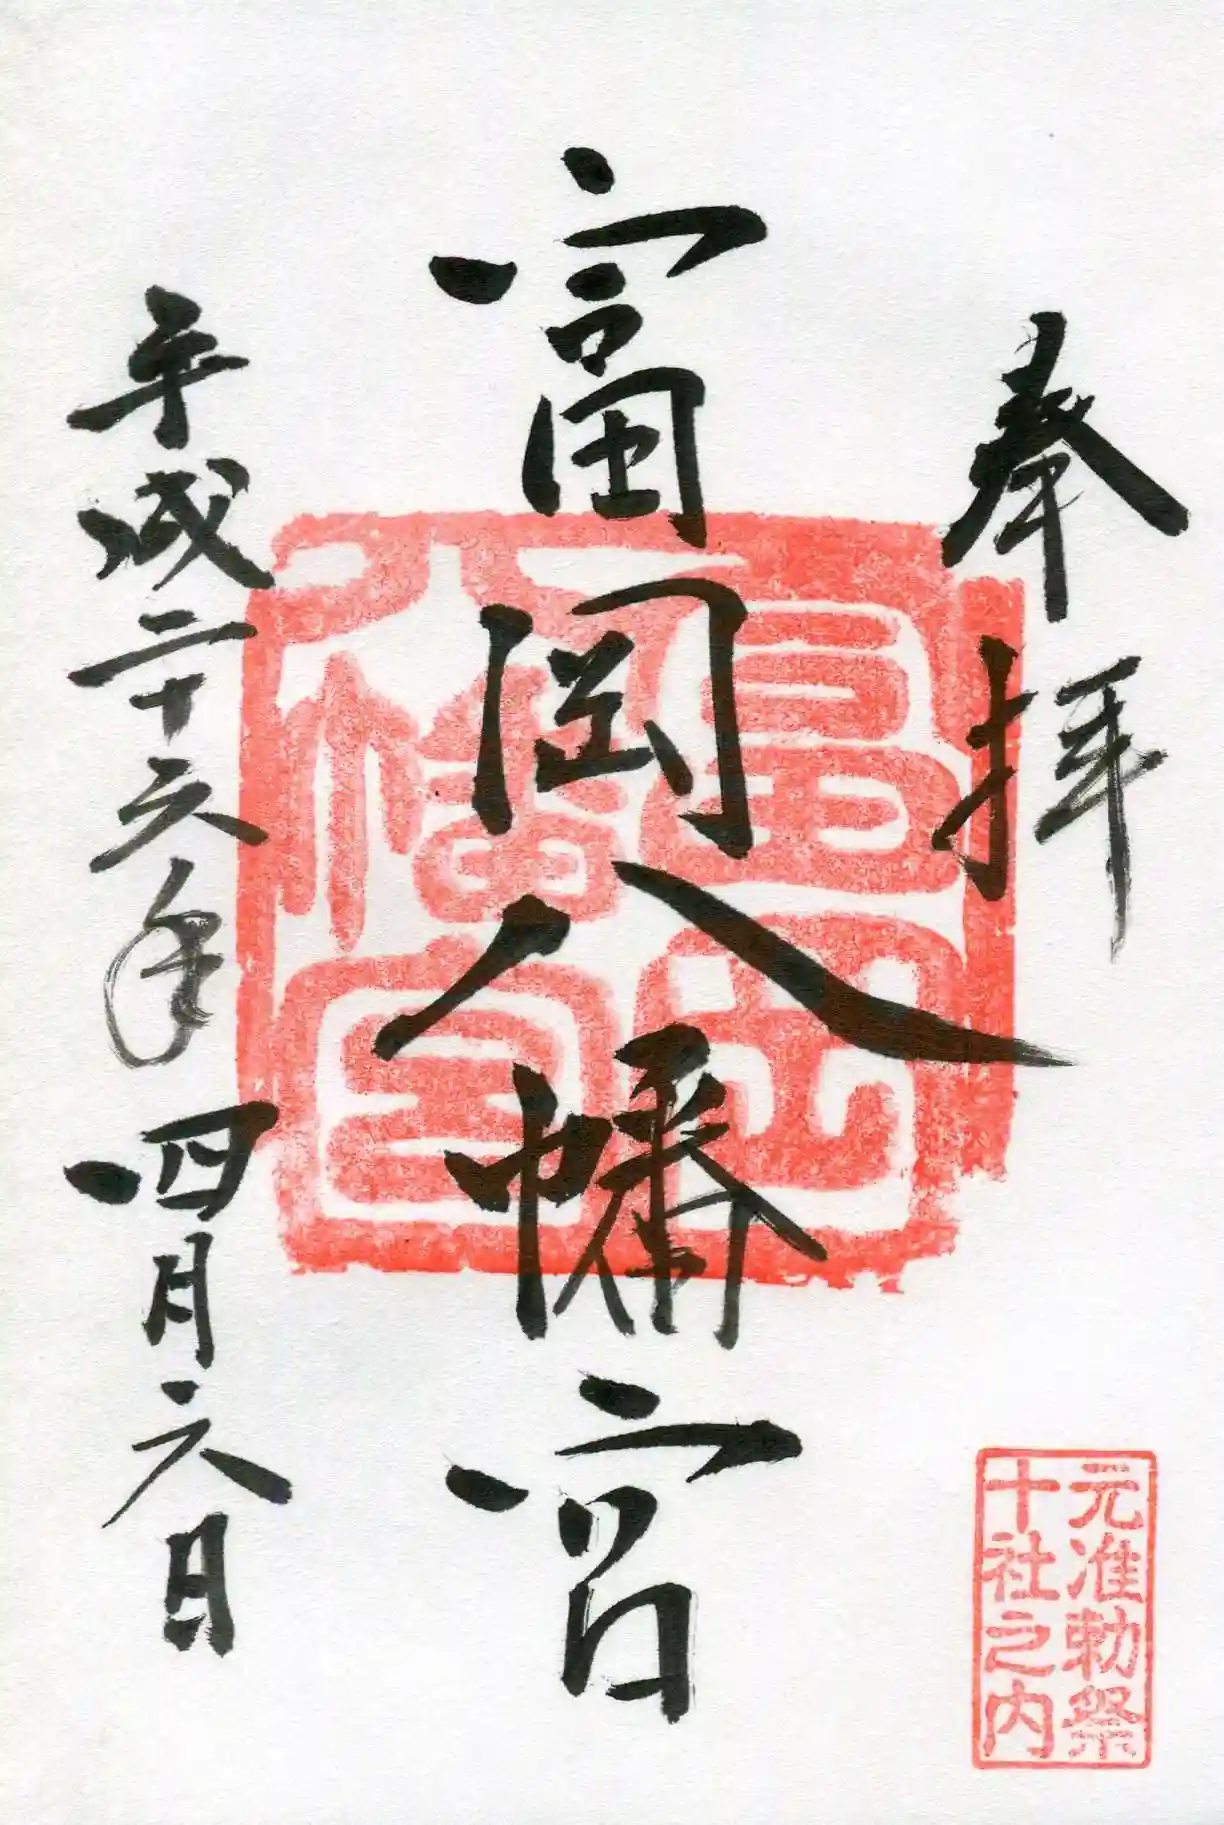 奉拝
富岡八幡宮
平成二十六年四月六日
富岡八幡宮
元准勅祭
十社之内